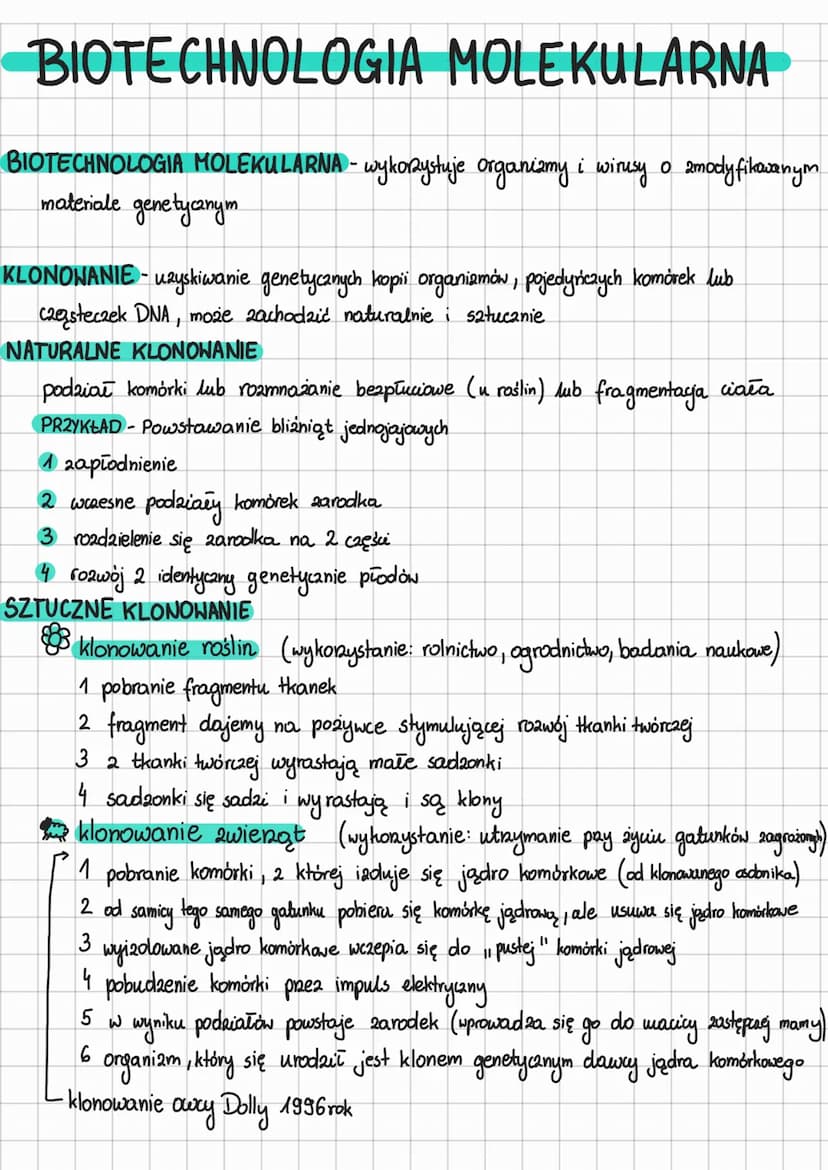 BIOTECHNOLOGIA MOLEKULARNA
BIOTECHNOLOGIA MOLEKULARNA - wykorzystuje organizmy i wirusy o zmodyfikowanym
materiale genetycznym
KLONOWANIE - uzyskiwanie genetycznych kopii organizmów, pojedyńczych komórek lub
cząsteczek DNA, może zachodzić naturalnie i sztucznie
NATURALNE KLONOWANIE
podział komórki lub rozmnażanie bezpłciowe (u roślin) lub fragmentacja ciała
PRZYKŁAD - Powstawanie bliźniąt jednojajowych
1 zapłodnienie
2 wczesne podziały komórek zarodka
3 rozdzielenie się zarodka na 2 części
4 rozwój 2 identyczny genetycznie płodów
SZTUCZNE KLONOWANIE
klonowanie roślin (wykorzystanie: rolnictwo, ogrodnictwo, badania naukowe)
1 pobranie fragmentu tkanek
2 fragment dajemy na pożywce stymulującej rozwój tkanki twórczej
3 z tkanki twórczej wyrastają małe sadzonki
4 sadzonki się sadzi i wyrastają i są klony
klonowanie zwierząt (wykorzystanie: utrzymanie przy życiu gatunków zagrożonych)
1 pobranie komórki, z której izoluje się jądro komórkowe (od klonowanego osobnika)
2 od samicy tego samego gatunku pobiera się komórkę jądrową, ale usuwa się jądro komórkowe
3 wyizolowane jądro komórkowe wczepia się do „pustej" komórki jądrowej
4 pobudzenie komórki przez impuls elektryczny
5 w wyniku podziałów powstaje zarodek (wprowadza się go do macicy zastępczej mamy)
6 organizm, który się urodził jest klonem genetycznym dawcy jądra komórkowego
klonowanie owcy Dolly 1996 rok